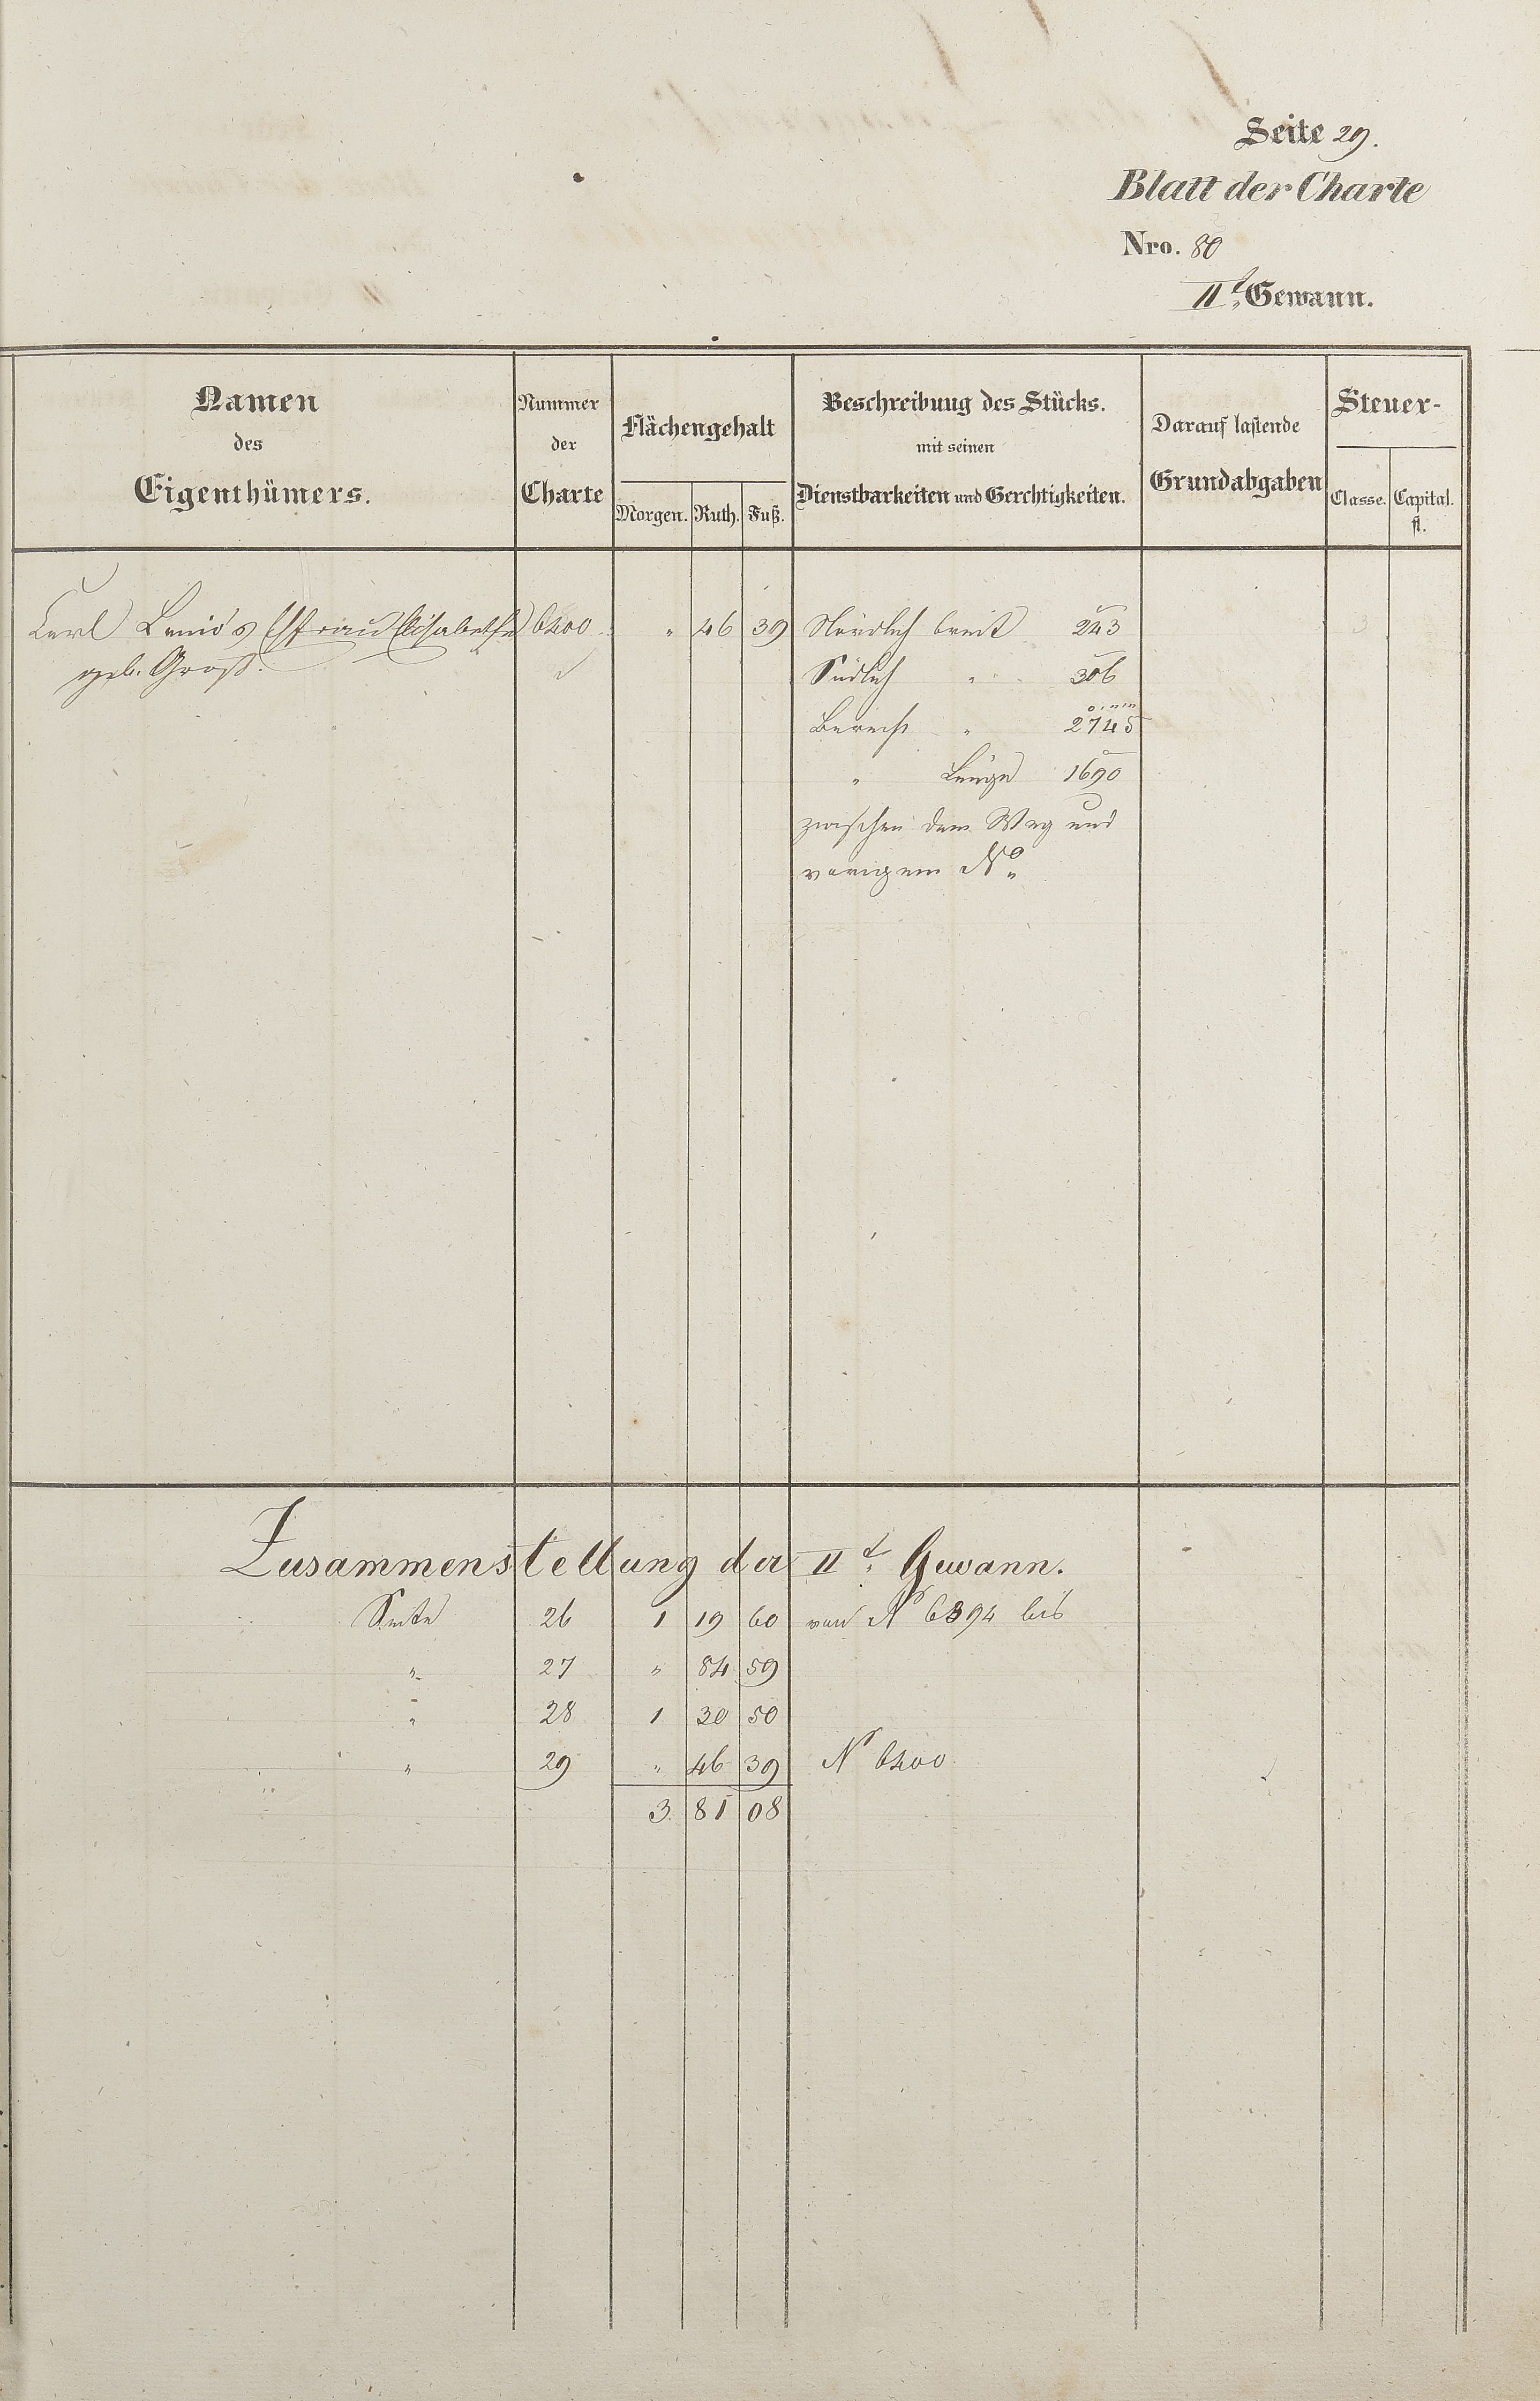 Seite 29.
Blatt der Charte
Nro. 80
IIt. Gewann.
Namen des Eigenthümers.
Nummer der Charte
Flächengehalt
Morgen. Ruth. Fuß.
Beschreibung des Stücks.
mit seinen
Dienstbarkeiten und Gerechtigkeiten.
Darauf lastende
Grundabgaben
Steuer-
Classe. Capital.
fl.
Carl Ehfrau Elisabetha 6400 " 46 39 Nördlich breit 243
geb. Groß. Südlich " 306
Berech " 2745
" Länge 1690
zwischen dem Weg und
vorigem No
Zusammenstellung der IIt. Gewann.
Seite 26 1 19 60 von No 6394 bis
" 27 " 84 59
" 28 1 30 50
" 29 " 46 39 No 6400
3 81 08